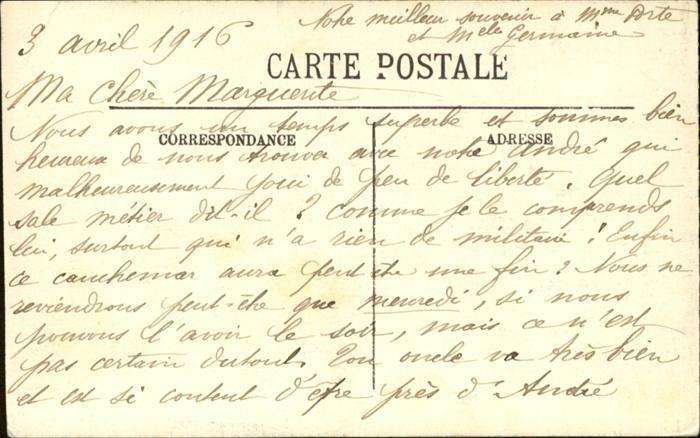 3 avril 1916
Notre meilleur souvenir à Mme Porte
et Melle Germaine
CARTE POSTALE
Ma Chère Marguerite
CORRESPONDANCE
ADRESSE
Nous avons un temps superbe et sommes bien
heureux de nous trouver avec notre André qui
malheureusement joui de peu de liberté. Quel
sale métier dit-il ? comme je le comprends
lui, surtout qui n'a rien de militaire ! Enfin
ce cauchemar aura peut être une fin ? Nous ne
reviendrons peut-être que mercredi, si nous
pouvons l'avoir le soir, mais ce n'est
pas certain du tout. Ton oncle va très bien
et est si content d'être près d'André